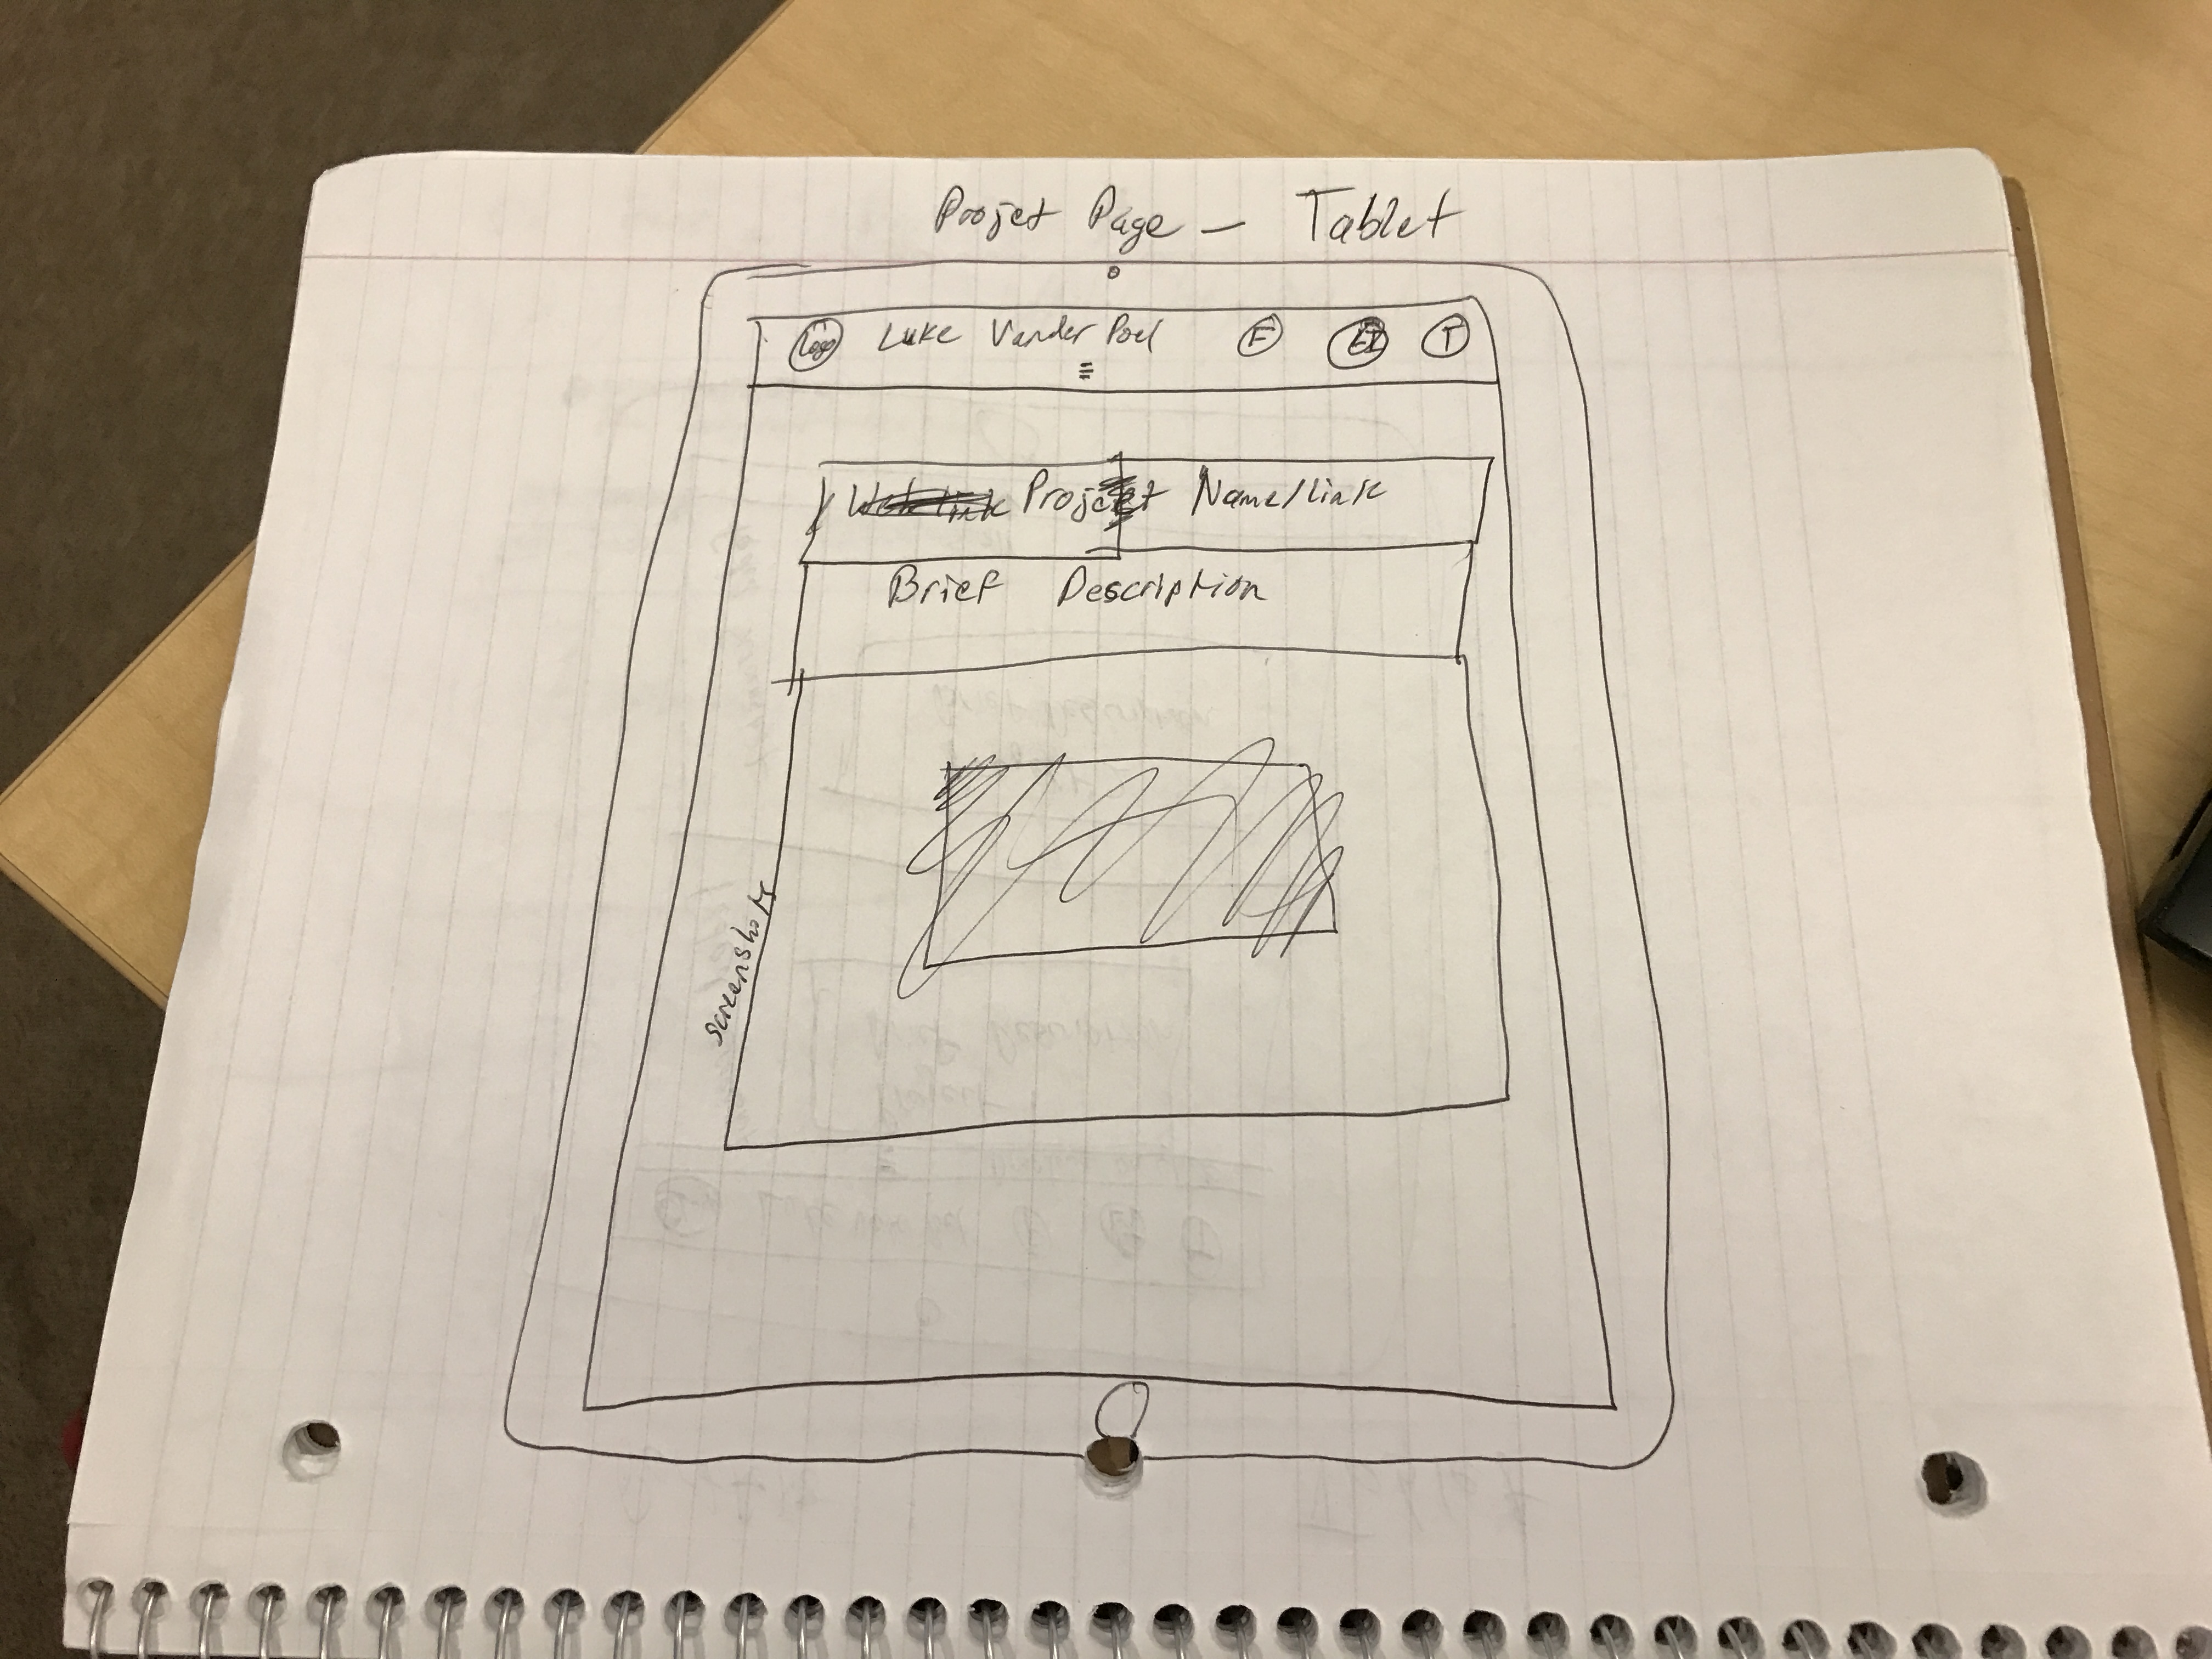 Projet Page - Tablet
Logo Luke Vander Poel F in T
Project Name/link
Brief Description
Screenshots